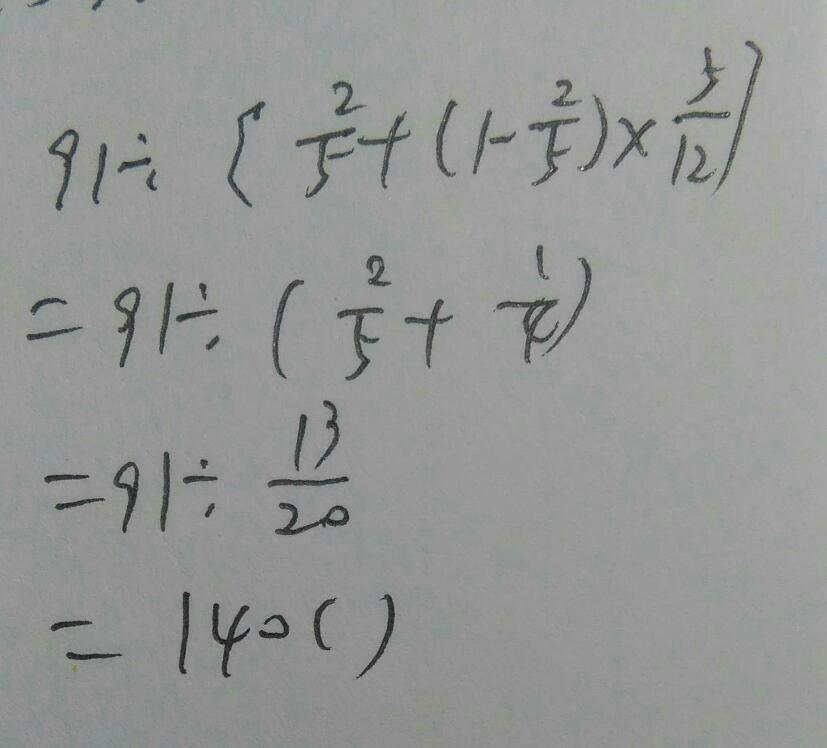 91÷[2/5+(1-2/5)×5/12]
=91÷(2/5+1/4)
=91÷13/20
=140( )